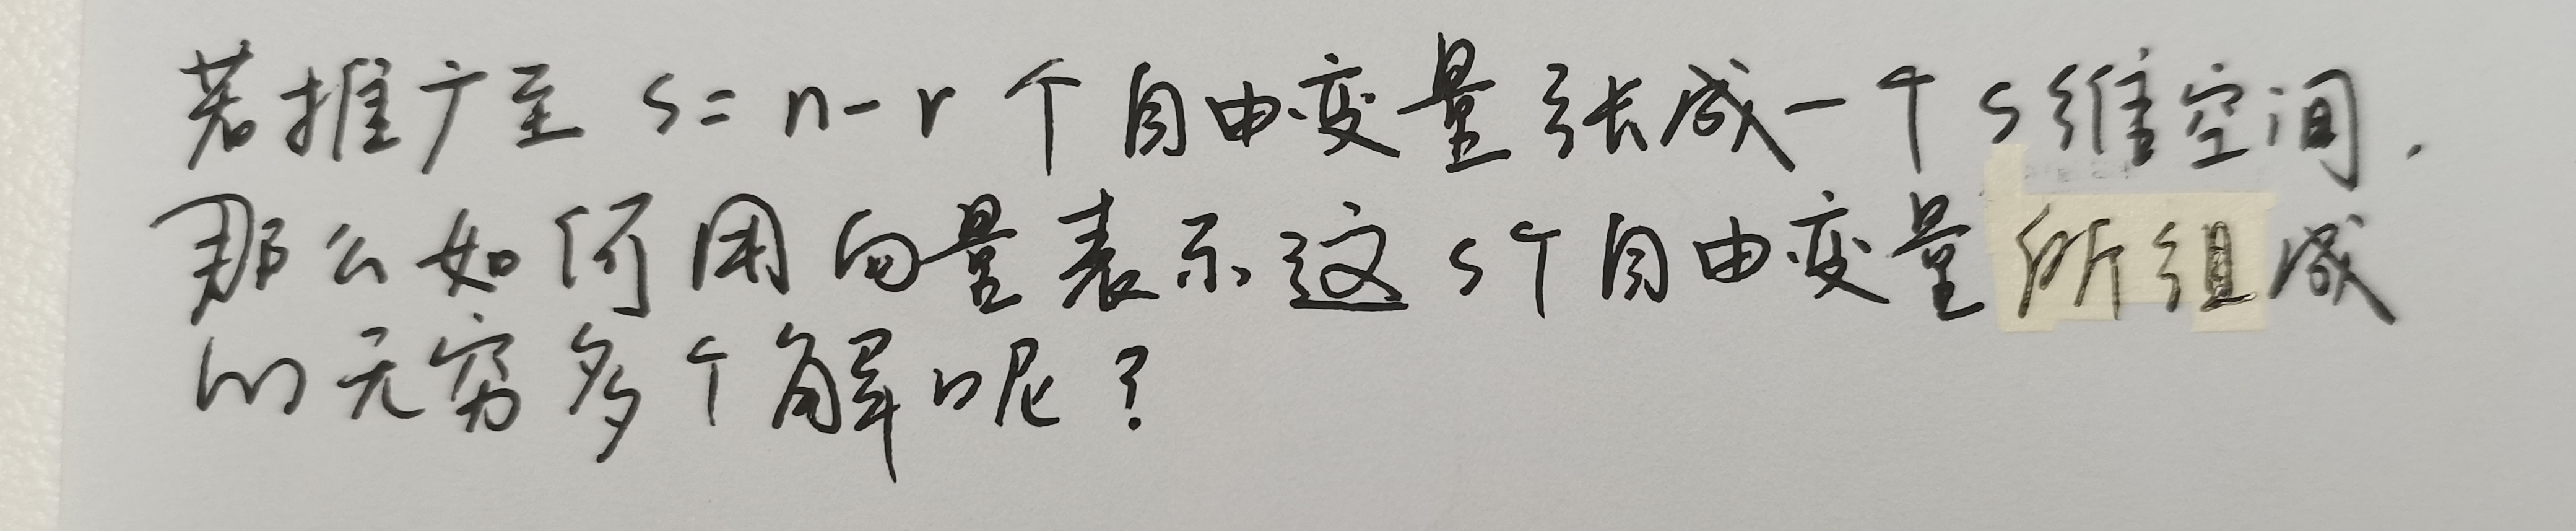 若推广至 s=n-r 个自由变量张成一个s维空间.
那么如何用向量表示这s个自由变量所组成
的无穷多个解呢?